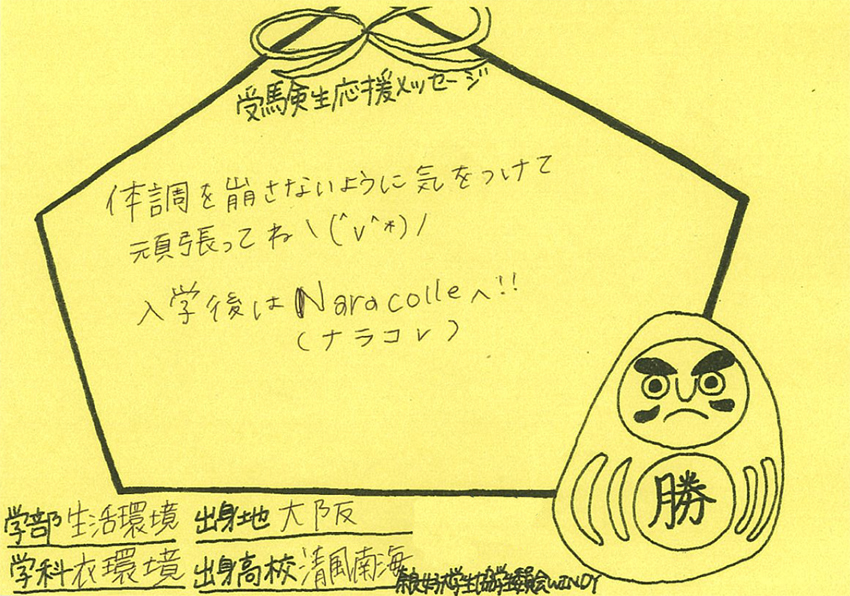 受験生応援メッセージ
体調を崩さないように気をつけて
頑張ってね\(^v^*)/
入学後はNaracolleへ!!
(ナラコレ)
勝
学部 生活環境 出身地 大阪
学科 衣環境 出身高校 清風南海
奈良女子大学生協学生委員会WINDY